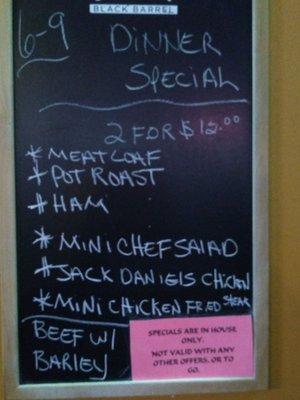 BLACK BARREL
6-9
DINNER
SPECIAL
2 FOR $12.00
* MEATLOAF
* POT ROAST
* HAM
* MINI CHEF SALAD
* JACK DANIELS CHICKEN
* MINI CHICKEN FRIED STEAK
BEEF W/
BARLEY
SPECIALS ARE IN HOUSE
ONLY.
NOT VALID WITH ANY
OTHER OFFERS. OR TO
GO.